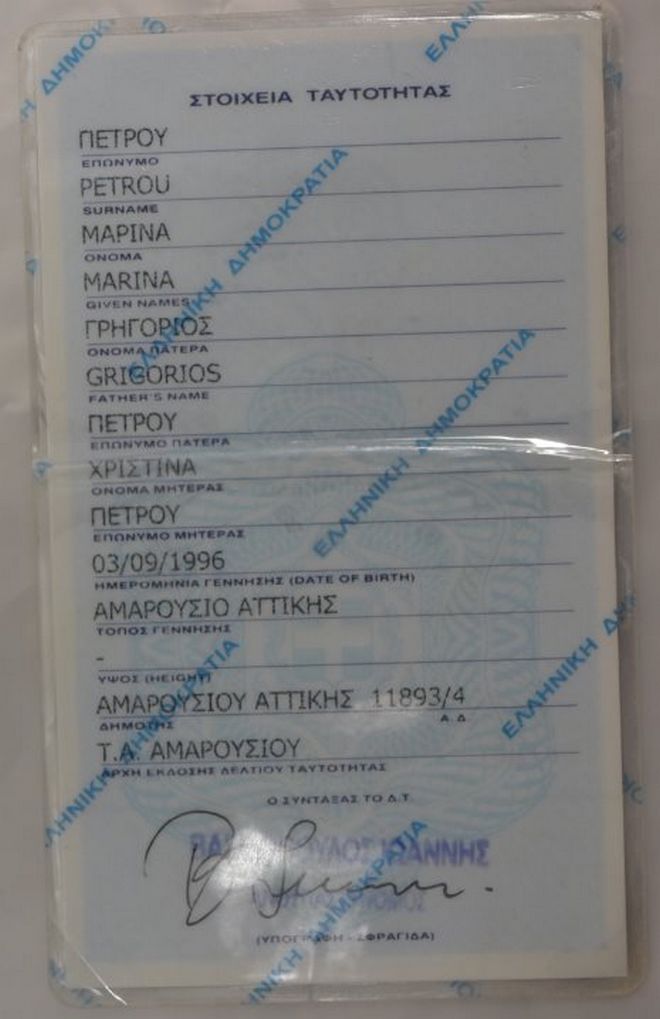 ΣΤΟΙΧΕΙΑ ΤΑΥΤΟΤΗΤΑΣ
ΠΕΤΡΟΥ
ΕΠΩΝΥΜΟ
PETROU
SURNAME
ΜΑΡΙΝΑ
ΟΝΟΜΑ
MARINA
GIVEN NAMES
ΓΡΗΓΟΡΙΟΣ
ΟΝΟΜΑ ΠΑΤΕΡΑ
GRIGORIOS
FATHER'S NAME
ΠΕΤΡΟΥ
ΕΠΩΝΥΜΟ ΠΑΤΕΡΑ
ΧΡΙΣΤΙΝΑ
ΟΝΟΜΑ ΜΗΤΕΡΑΣ
ΠΕΤΡΟΥ
ΕΠΩΝΥΜΟ ΜΗΤΕΡΑΣ
03/09/1996
ΗΜΕΡΟΜΗΝΙΑ ΓΕΝΝΗΣΗΣ (DATE OF BIRTH)
ΑΜΑΡΟΥΣΙΟ ΑΤΤΙΚΗΣ
ΤΟΠΟΣ ΓΕΝΝΗΣΗΣ
-
ΥΨΟΣ (HEIGHT)
ΑΜΑΡΟΥΣΙΟΥ ΑΤΤΙΚΗΣ 11893/4
ΔΗΜΟΤΗΣ Α.Δ
Τ.Α. ΑΜΑΡΟΥΣΙΟΥ
ΑΡΧΗ ΕΚΔΟΣΗΣ ΔΕΛΤΙΟΥ ΤΑΥΤΟΤΗΤΑΣ
Ο ΣΥΝΤΑΞΑΣ ΤΟ Δ.Τ.
ΙΩΑΝΝΗΣ
(ΥΠΟΓΡΑΦΗ - ΣΦΡΑΓΙΔΑ)
ΕΛΛΗΝΙΚΗ ΔΗΜΟΚΡΑΤΙΑ
ΕΛΛΗΝΙΚΗ ΔΗΜΟΚΡΑΤΙΑ